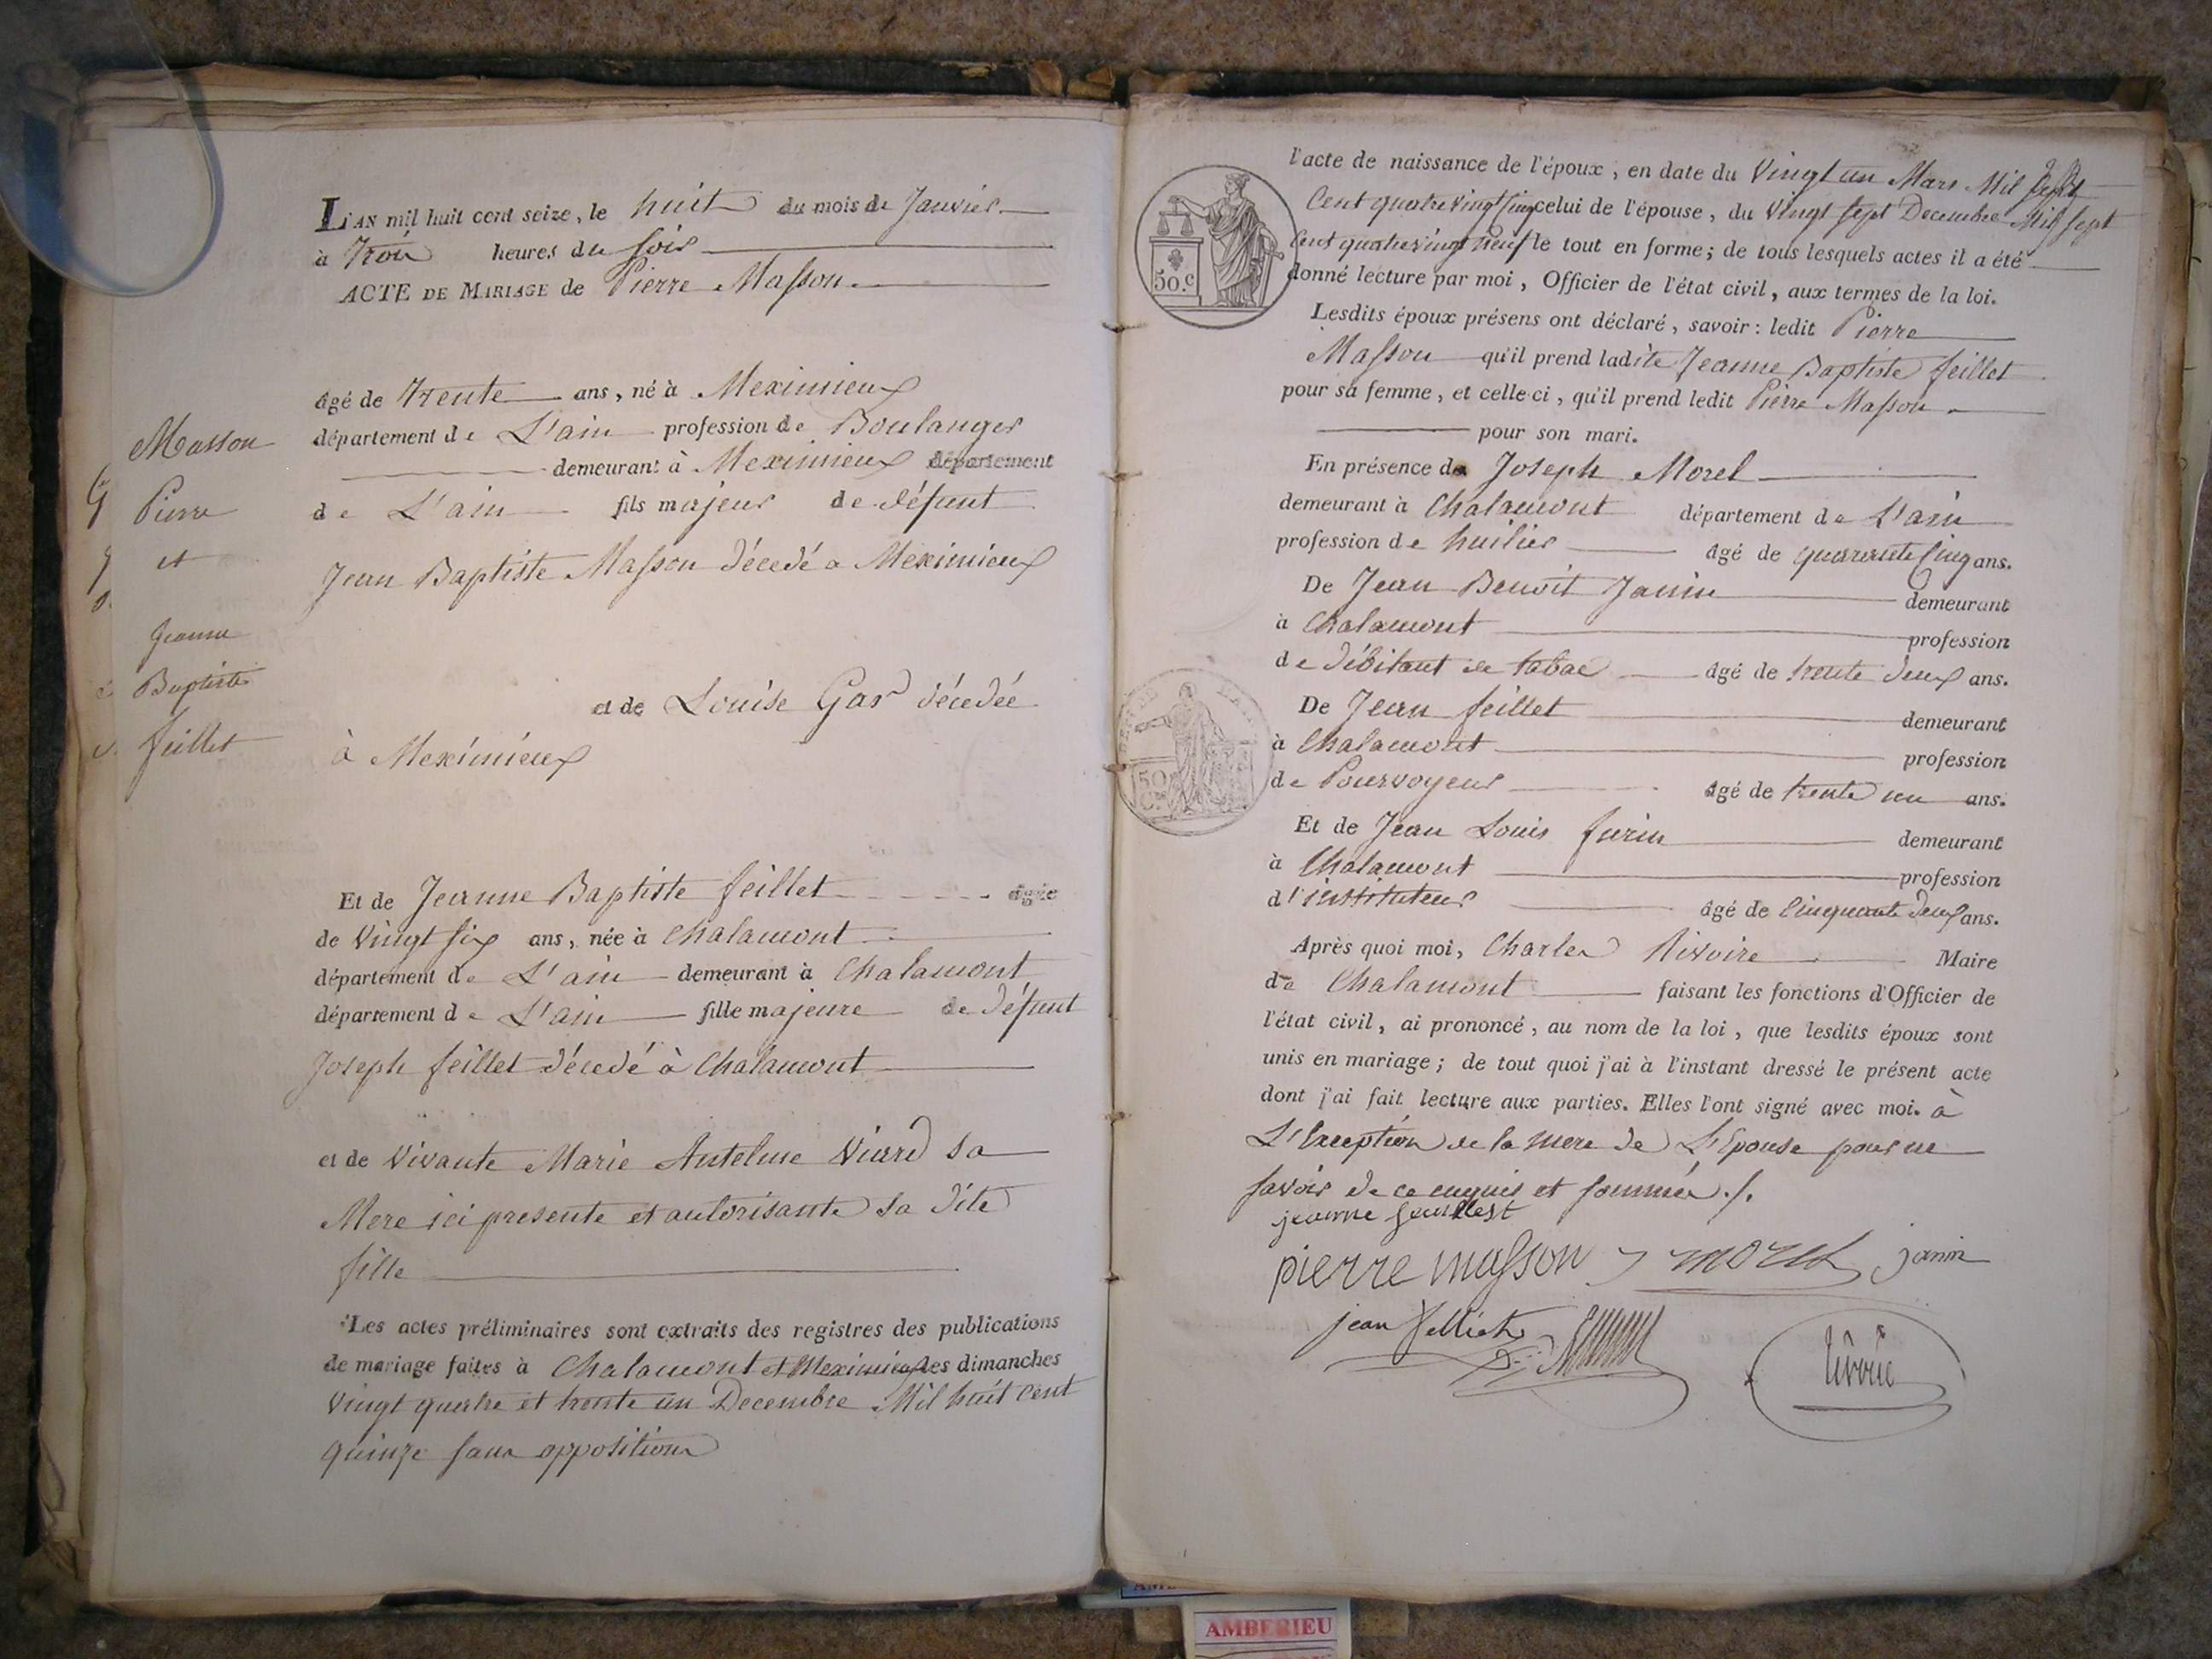 Masson
Pierre
et
Jeanne
Baptiste
feillet
L'AN mil huit cent seize, le huit du mois de Janvier
à Trois heures du soir
ACTE DE MARIAGE de Pierre Masson
âgé de trente ans, né à Meximieux
département de L'ain profession de Boulanger
demeurant à Meximieux département
de L'ain fils majeur de défunt
Jean Baptiste Masson décedé a Meximieux
et de Louise Gar décedée
à Meximieux
Et de Jeanne Baptiste feillet âgée
de vingt six ans, née à Chalamont
département de L'ain demeurant à Chalamont
département de L'ain fille majeure de défunt
Joseph feillet décedé à Chalamont
et de vivante Marie Antelme Viard sa
Mere ici presente et autorisante sa dite
fille
Les actes préliminaires sont extraits des registres des publications
de mariage faites à Chalamont et Meximieux les dimanches
vingt quatre et trente un Decembre Mil huit Cent
quinze sans opposition
l'acte de naissance de l'époux, en date du vingt un Mars Mil Sept
Cent quatre vingt Cinq celui de l'épouse, du vingt sept Decembre Mil sept
Cent quatre vingt Neuf le tout en forme; de tous lesquels actes il a été
donné lecture par moi, Officier de l'état civil, aux termes de la loi.
50.c
Lesdits époux présens ont déclaré, savoir: ledit Pierre
Masson qu'il prend ladite Jeanne Baptiste feillet
pour sa femme, et celle-ci, qu'il prend ledit Pierre Masson
pour son mari.
En présence de Joseph Morel
demeurant à Chalamont département de L'ain
profession de huilier âgé de quarante Cinq ans.
De Jean Benoit Janin demeurant
à Chalamont profession
de débitant de tabac âgé de trente deux ans.
De Jean feillet demeurant
à Chalamont profession
50
de Pourvoyeur âgé de trente un ans.
Et de Jean Louis furin demeurant
à Chalamont profession
d'instituteur âgé de Cinquante deux ans.
Après quoi moi, Charles Rivoire Maire
de Chalamont faisant les fonctions d'Officier de
l'état civil, ai prononcé, au nom de la loi, que lesdits époux sont
unis en mariage; de tout quoi j'ai à l'instant dressé le présent acte
dont j'ai fait lecture aux parties. Elles l'ont signé avec moi. à
L'Exception de la mere de L'Epouse pour ne
savoir de ce enquis et sommée ./.
jeanne
pierre masson morel janin
jean
AMBERIEU